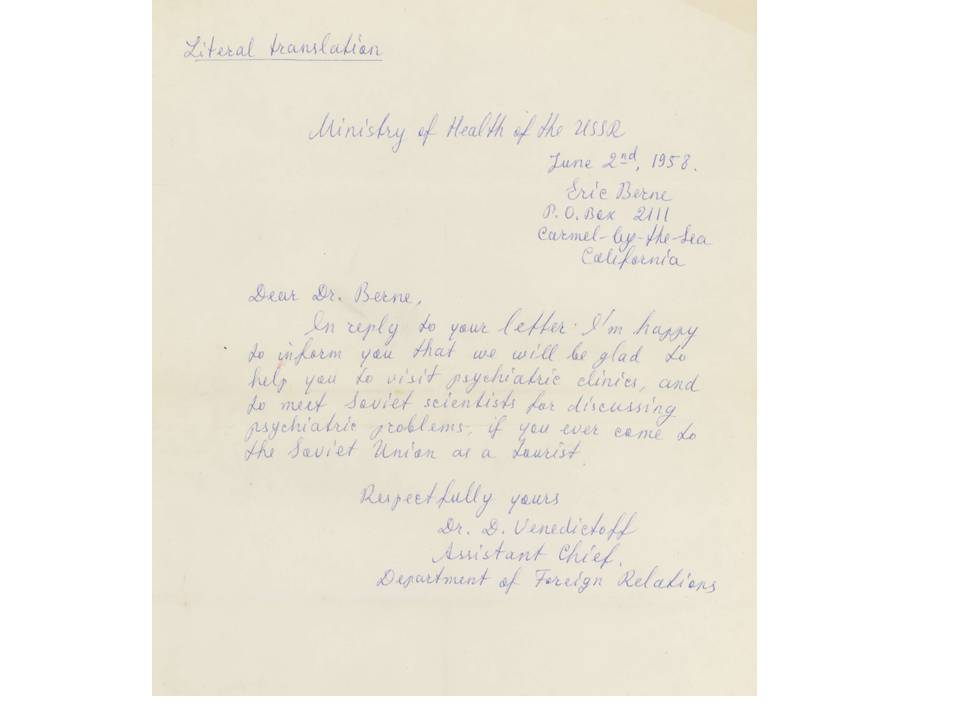 Literal translation
Ministry of Health of the USSR
June 2nd, 1958.
Eric Berne
P.O. Box 2111
Carmel-by-the-Sea
California
Dear Dr. Berne,
In reply to your letter I'm happy
to inform you that we will be glad to
help you to visit psychiatric clinics, and
to meet Soviet scientists for discussing
psychiatric problems, if you ever come to
the Soviet Union as a tourist
Respectfully yours
Dr. D. Venedictoff
Assistant Chief.
Department of Foreign Relations